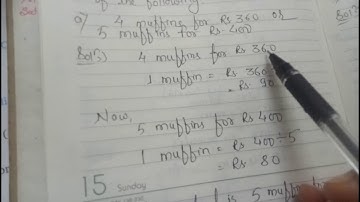 of the following
a) 4 muffins for Rs 360 or
5 muffins for Rs 400
Soln) 4 muffins for Rs 360
1 muffin = Rs 360
= Rs 90
Now,
5 muffins for Rs 400
1 muffin = Rs 400 ÷ 5
= Rs 80
15 Sunday
5 muffins